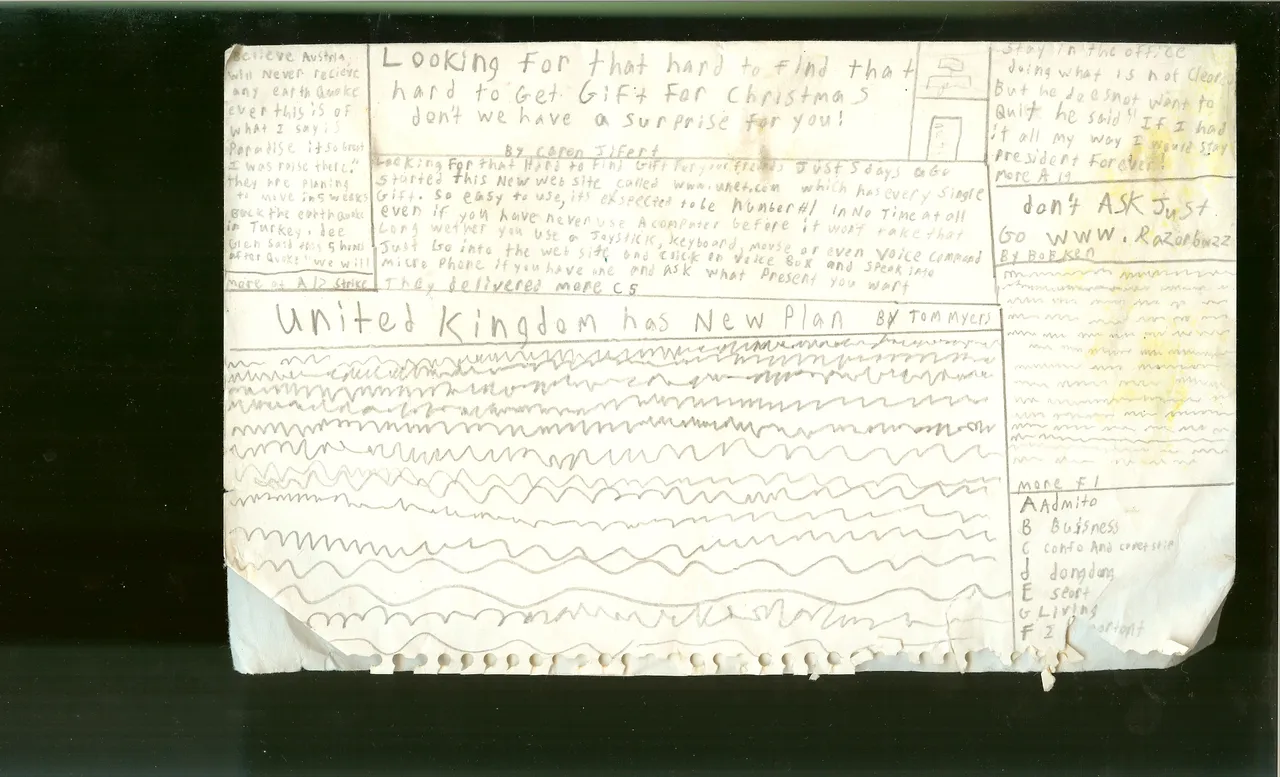 Believe Austria
will Never recieve
any earth Quake
ever this is of
what I say is
Paradise it so Great
I was raise there."
they are planing
to move in 5 weeks
Back the earth quake
in Turkey. dee
Glen said this 5 hours
after Quake "we will
more at A12 Strike
Looking For that hard to find that
hard to Get Gift For Christmas
don't we have a surprise for you!
By Caron Jifert
Looking For that Hard to Find Gift For your friends Just 5 days aGo
started this New web site called www.unet.com which has every single
Gift. So easy to use, its exspected to be Number #1 In No Time at all
even if you have never use A computer before it won't take that
Long wether you use a Joystick, keyboard, mouse or even voice command
Just Go into the web site and click on voice Box and speak into
micro Phone if you have one and ask what present you want
They delivered more C5
Stay in the office
doing what is not Clear
But he does not want to
Quit he said "If I had
it all my way I would stay
President Forever!
More A 19
don't ASK Just
Go www.Razorbuzz
By Bob Ken
more F1
United Kingdom has New Plan By Tom Myers
A Admito
B Buisness
C Confo And
d dongdong
E seort
G Living
F I portant